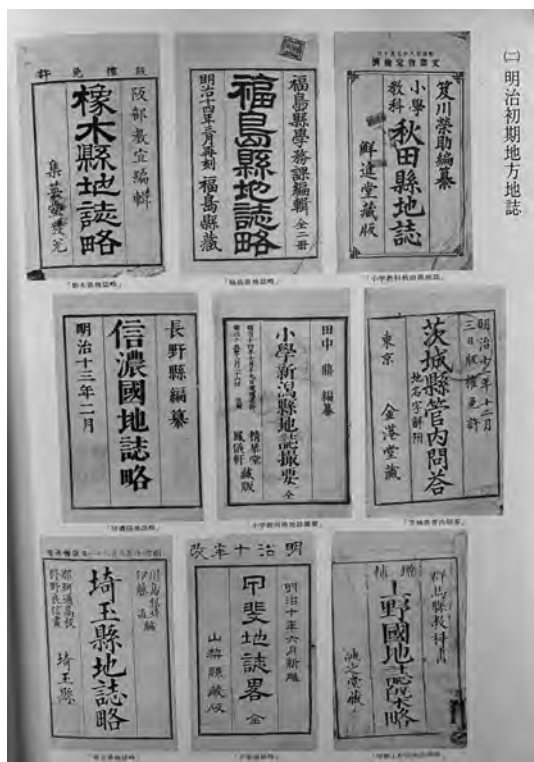 ㈡ 明治初期地方地誌
文部省檢定濟
笈川榮助編纂
小學
教科
秋田縣地誌
鮮進堂藏版
「小学教科秋田県地誌」
福島縣學務課編輯 全二冊
福島縣地誌略
明治十四年三月再刻 福島縣藏
「福島県地誌略」
版權免許
阪部教宜編輯
橡木縣地誌略
集英堂發兌
「栃木県地誌略」
明治十二年十二月
三日版權免許
茨城縣管内問荅
地名字解附
東京 金港堂藏
「茨城県管内問答」
田中 鼎 編纂
小學新潟縣地誌撮要 全
精華堂
鳳儀軒 藏版
「小学新潟県地誌撮要」
長野縣編纂
信濃國地誌略
明治十三年二月
「信濃国地誌略」
群馬縣教科書
増補
上野國地誌略
誠之堂藏
明治十年改
明治十年六月新雕
甲斐地誌畧 全
山梨縣藏版
「甲斐地誌略」
埼玉縣地誌略
埼玉縣
「埼玉県地誌略」